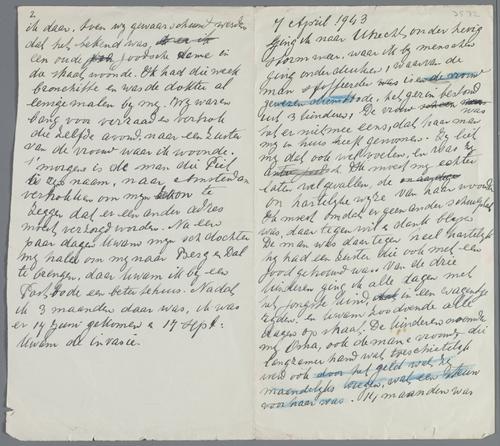 7 April 1943
ging ik naar Utrecht, onder hevig
stormweer, waar ik bij menschen
ging onderduiken, waarvan de
man stoffeerder was en de vrouw
het gezin bestond
uit 3 kinderen. De vrouw
was er niet mee eens, dat haar man
mij in huis heeft genomen. Zij liet
mij dat ook wel voelen, en was
Ik moest mij echter
laten welgevallen, de
on hartelijke wijze van haar woorden
Ik moest omdat er geen ander schuilplaats
was, daar tegen wil & dank blijven
De man was daartegen heel hartelijk
hij had een zuster die ook met een
Jood getrouwd was. Van de drie
kinderen ging ik alle dagen met
het jongste kind in een wagentje
rijden, en kwam zoodoende alle
dagen op straat. De kinderen noemde
mij Oma, ook de man & vrouw, die
langzamer hand wat toeschietelijk
werd ook door het geld wat ze
maandelijks kregen, wat een
voor haar was. maanden was
2.
ik daar, toen wij gewaarschuwd werden
dat het bekend was,
een oude Joodsche dame in
de straat woonde. Ik had die week
bronchitis en was de dokter al
eens gehaald bij mij. Wij waren
bang voor verraad en vertrok
die zelfde avond, naar een zuster
van de vrouw waar ik woonde.
's morgens is de man die Piet
naam, naar Amsterdam
vertrokken om mijn zoon te
zeggen dat er een ander adres
moest verzorgd worden. Na een
paar dagen kwam mijn schoondochter
mij halen om mij naar Berg en Dal
te brengen, daar kwam ik bij een
Postbode een beter tehuis. Nadat
ik 3 maanden daar was, ik was
er 14 Juni gekomen & 17 Sept.
kwam de invasie.